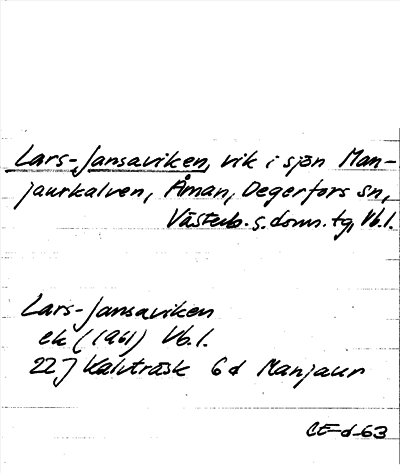 Lars-Jansaviken, vik i sjön Man-
jaurkalven, Åman, Degerfors sn,
Västerb. s. doms. tg, Vb. l.
Lars-Jansaviken
ek (1961) Vb. l.
22 J Kalvträsk 6 d Manjaur
CE-d-63